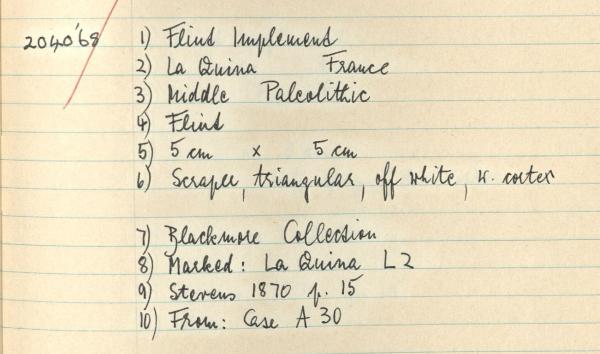 2040'68 1) Flint Implement
2) La Quina France
3) Middle Paleolithic
4) Flint
5) 5 cm x 5 cm
6) Scraper, triangular, off white, w. cortex
7) Blackmore Collection
8) Marked: La Quina L2
9) Stevens 1870 p. 15
10) From: Case A 30